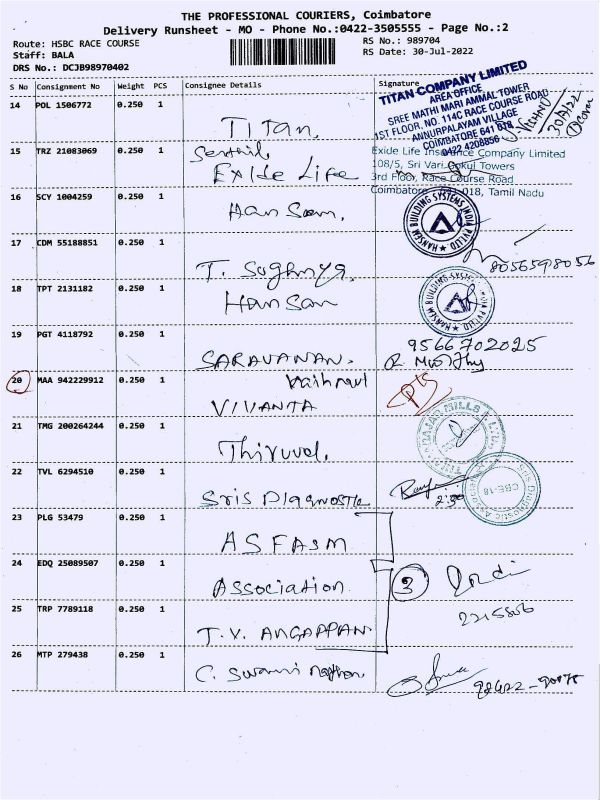 THE PROFESSIONAL COURIERS, Coimbatore
Delivery Runsheet - MO - Phone No.:0422-3505555 - Page No.:2
Route: HSBC RACE COURSE
RS No.: 989704
Staff: BALA
RS Date: 30-Jul-2022
DRS No.: DCJB98970402
S No Consignment No Weight PCS Consignee Details Signature
14 POL 1506772 0.250 1 Titan.
TITAN COMPANY LIMITED
AREA OFFICE
SREE MATHI MARI AMMAL TOWER
1ST FLOOR, NO. 114C RACE COURSE ROAD
ANNURPALAYAM VILLAGE
COIMBATORE 641 018
0422 4208856
30/7/22
15 TRZ 21083069 0.250 1 Senthil,
Exide Life
Exide Life Insurance Company Limited
108/5, Sri Vari Gokul Towers
3rd Floor, Race Course Road
Coimbatore - 641 018, Tamil Nadu
16 SCY 1004259 0.250 1 Han Sem.
HANSEM BUILDING SYSTEMS INDIA PVT LTD
17 CDM 55188851 0.250 1 T. Sughnya
8056598056
18 TPT 2131182 0.250 1 Han San
HANSEM BUILDING SYSTEMS INDIA PVT LTD
19 PGT 4118792 0.250 1 SARAVANAN.
9566702025
R Moorthy
20 MAA 942229912 0.250 1
VIVANTA
21 TMG 200264244 0.250 1 Thiruval.
MILLS
22 TVL 6294510 0.250 1 Sris Diagnostic
2:30
Sris Diagnostic
CBE-18
23 PLG 53479 0.250 1 ASFASM
24 EDQ 25089507 0.250 1 Association
3
25 TRP 7789118 0.250 1 T.V. ANGAPPAN
2215806
26 MTP 279438 0.250 1 C. Swaminathan
98422-90075